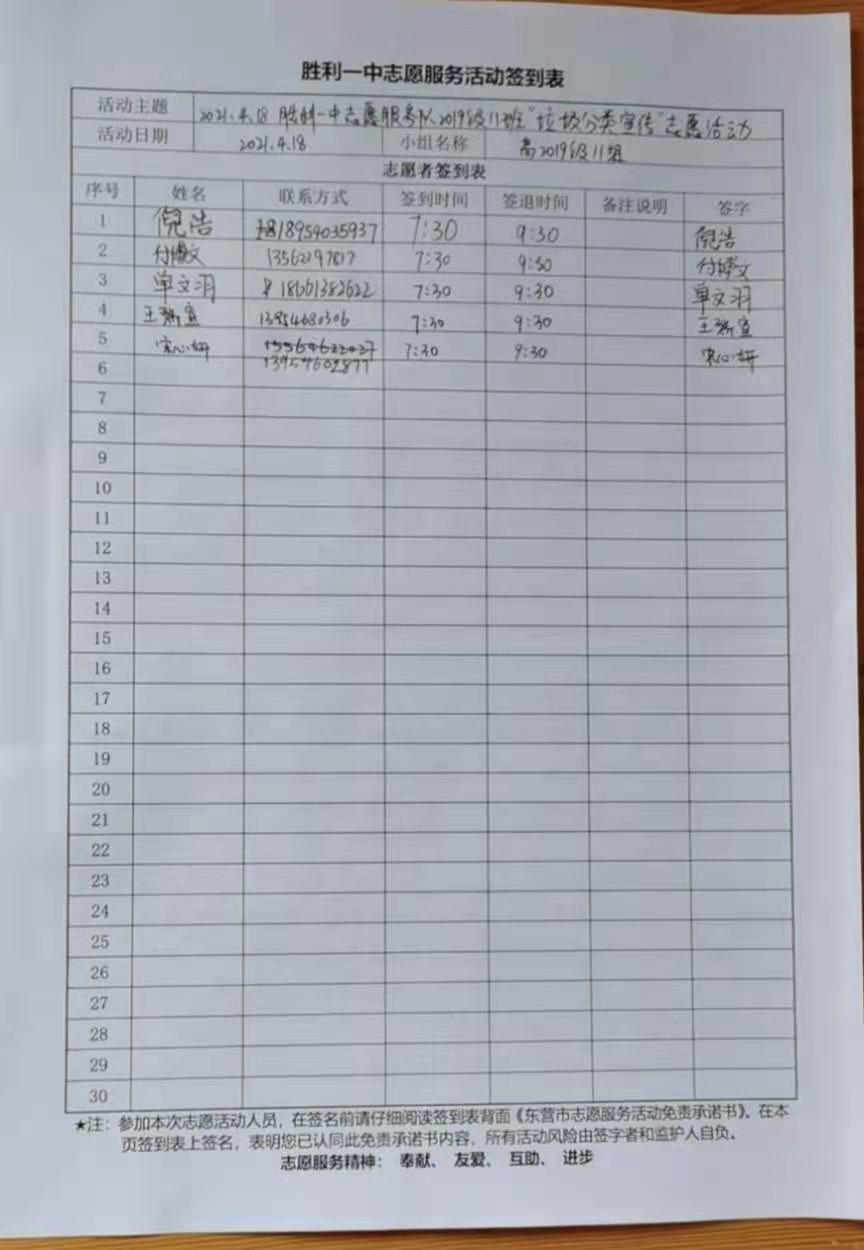 胜利一中志愿服务活动签到表
活动主题 2021.4.18 胜利一中志愿服务队2019级11班"垃圾分类宣传"志愿活动
活动日期 2021.4.18 小组名称 高2019级11组
志愿者签到表
序号 姓名 联系方式 签到时间 签退时间 备注说明 签字
1 倪浩 18954035937 7:30 9:30 倪浩
2 付博文 7:30 9:30 付博文
3 单文羽 18661382622 7:30 9:30 单文羽
4 13954680306 7:30 9:30
5 宋心妍 15564622027 7:30 9:30 宋心妍
6 13954602877
7
8
9
10
11
12
13
14
15
16
17
18
19
20
21
22
23
24
25
26
27
28
29
30
★注：参加本次志愿活动人员，在签名前请仔细阅读签到表背面《东营市志愿服务活动免责承诺书》。在本
页签到表上签名，表明您已认同此免责承诺书内容，所有活动风险由签字者和监护人自负。
志愿服务精神： 奉献、 友爱、 互助、 进步